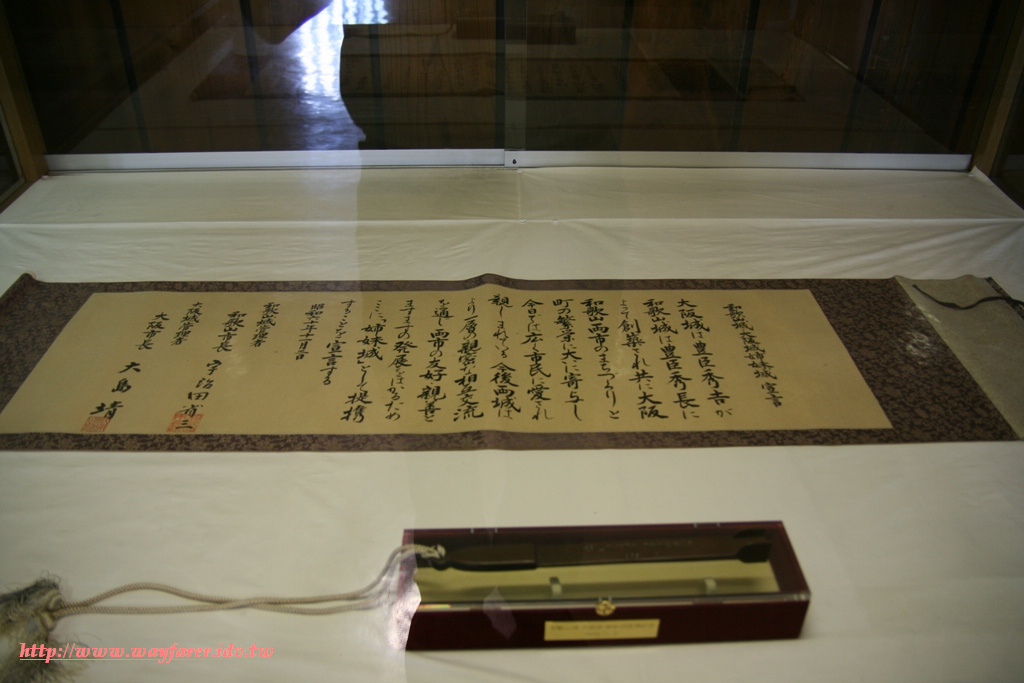 和歌山城大阪城姉妹城宣言
大阪城は豊臣秀吉が
和歌山城は豊臣秀長に
よって創築され共に大阪
和歌山両市のまちづくりと
町の繁栄に大いに寄与し
今日では広く市民に愛され
親しまれている今後両城は
より一層の親密な相互交流
を通し両市の友好親善と
ますますの発展をはかるため
ここに「姉妹城」として提携
することを宣言する
和歌山城管理者
和歌山市長
大阪城管理者
大阪市長
大島 靖
http://www.wayfarer.idv.tw